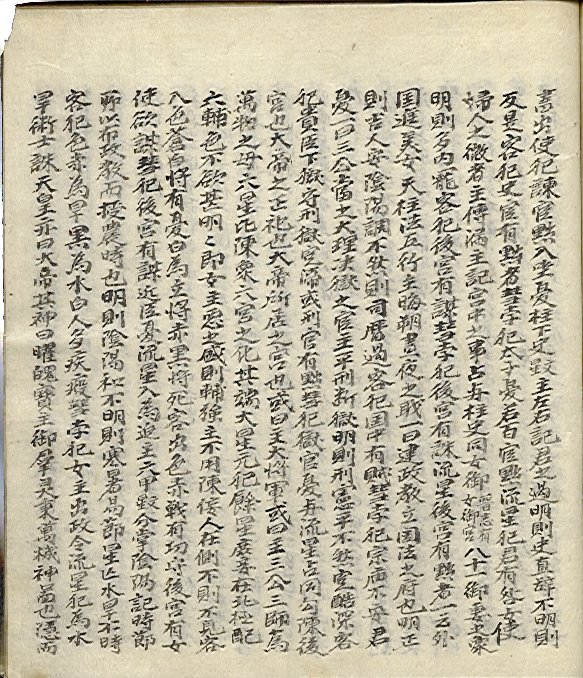 書出使犯諫官黜入主憂柱下史毀主左右記君之過明則史直辭不明則
反是客犯史官有黜者彗孛犯太子憂若百官黜流星犯君有咎女使
婦人之微者主傳漏主記宮中之事占与柱史同女御晋志有女御宮八十一御妻之象
明則多内寵客犯後宮有謀彗孛犯後宮有誅流星後宮有黜者一云外
国進美女天柱法五行主晦朔晝夜之職一曰建政教立圖法之府也明正
則吉人安陰陽調不然則司曆過客犯国中有賊彗孛犯宗廟不安君
憂一曰三公占當之大理决獄之官主平刑断獄明則刑憲平不然官酷深客
犯貴臣下獄守刑獄寃滞或刑官有黜彗犯獄官憂奔流星占同勾陳後
宮也大帝之正妃也大帝所居之宮也或曰主大将軍或曰主三公三師為
萬物之母六星比陳象六宮之化其端大星元妃餘星庶妾在北极配
六輔色不欲甚明々即女主惡之盛則輔徐主不用陳佞人在側不則不見客
入色蒼白将有憂白為立将赤黒将死客出色赤戰有功守後宮有女
使欲謀彗犯後宮有謀近臣憂流星入為迫主六甲毀分掌陰陽記時節
所以布政教而授農時也明則陰陽和不明則寒暑易節星亡水旱不時
客犯色赤為旱黒為水白人多疾疫彗孛犯女主出政令流星犯為水
旱術士誅天皇亦曰大帝其神曰曜魄寳主御羣灵秉萬機神啚也隱而